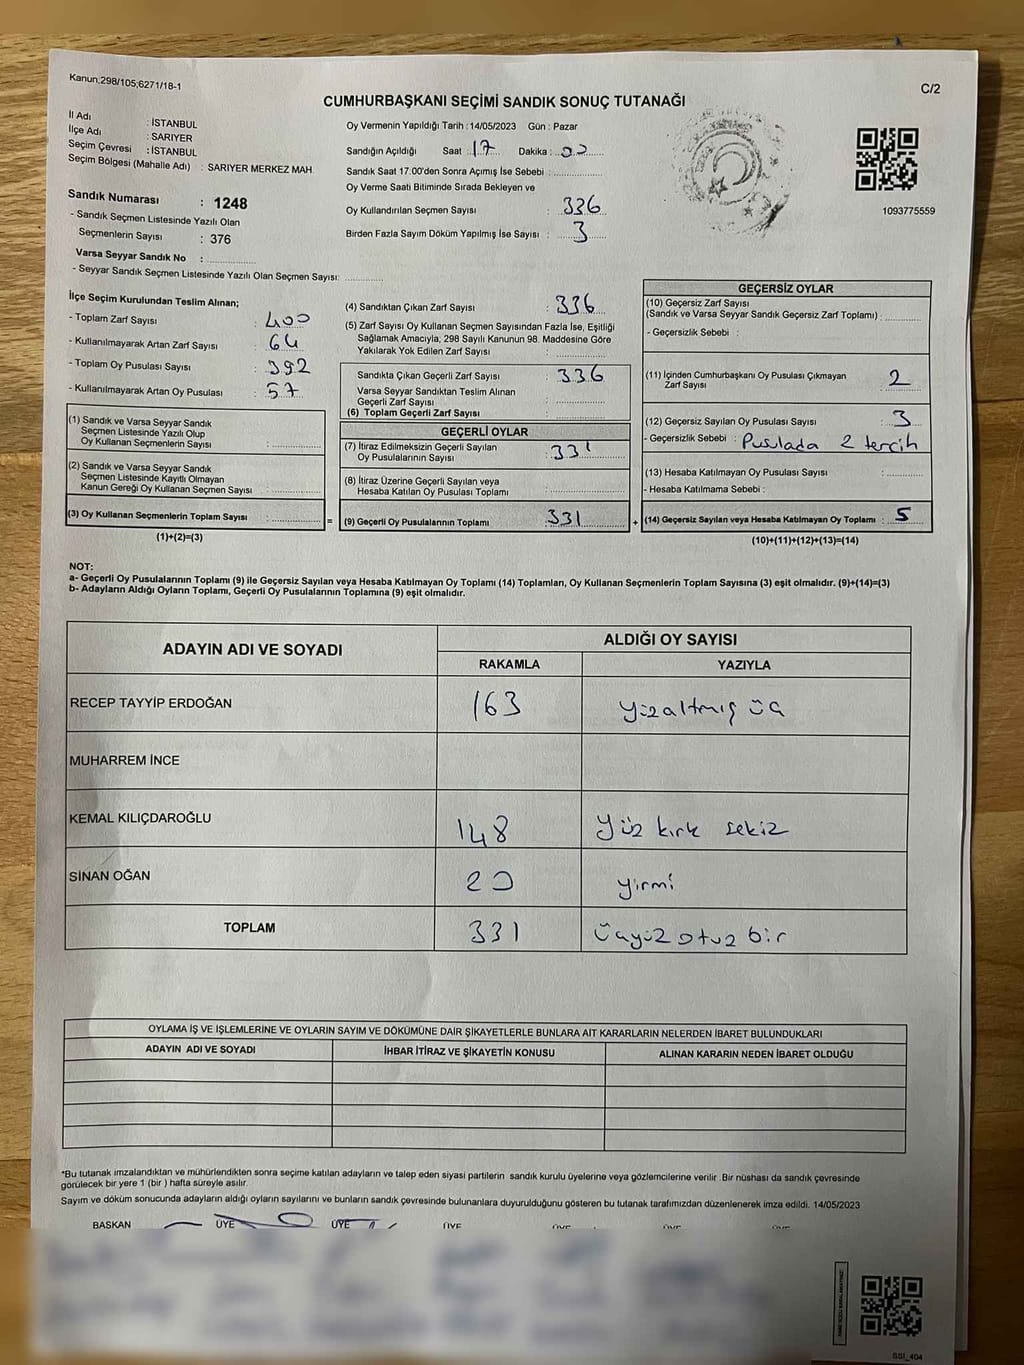 Kanun;298/105;6271/18-1
C/2
CUMHURBAŞKANI SEÇİMİ SANDIK SONUÇ TUTANAĞI
İl Adı : İSTANBUL
İlçe Adı : SARIYER
Seçim Çevresi : İSTANBUL
Seçim Bölgesi (Mahalle Adı) : SARIYER MERKEZ MAH
Sandık Numarası : 1248
- Sandık Seçmen Listesinde Yazılı Olan
Seçmenlerin Sayısı : 376
Varsa Seyyar Sandık No :
- Seyyar Sandık Seçmen Listesinde Yazılı Olan Seçmen Sayısı:
Oy Vermenin Yapıldığı Tarih :14/05/2023 Gün : Pazar
Sandığın Açıldığı Saat 17 Dakika : 00
Sandık Saat 17.00'den Sonra Açımış İse Sebebi :
Oy Verme Saati Bitiminde Sırada Bekleyen ve
Oy Kullandırılan Seçmen Sayısı : 336
Birden Fazla Sayım Döküm Yapılmış İse Sayısı : 3
1093775559
İlçe Seçim Kurulundan Teslim Alınan;
- Toplam Zarf Sayısı : 400
- Kullanılmayarak Artan Zarf Sayısı : 64
- Toplam Oy Pusulası Sayısı : 392
- Kullanılmayarak Artan Oy Pusulası : 57
(1) Sandık ve Varsa Seyyar Sandık
Seçmen Listesinde Yazılı Olup
Oy Kullanan Seçmenlerin Sayısı :
(2) Sandık ve Varsa Seyyar Sandık
Seçmen Listesinde Kayıtlı Olmayan
Kanun Gereği Oy Kullanan Seçmen Sayısı :
(3) Oy Kullanan Seçmenlerin Toplam Sayısı : =
(1)+(2)=(3)
(4) Sandıktan Çıkan Zarf Sayısı : 336
(5) Zarf Sayısı Oy Kullanan Seçmen Sayısından Fazla İse, Eşitliği
Sağlamak Amacıyla, 298 Sayılı Kanunun 98. Maddesine Göre
Yakılarak Yok Edilen Zarf Sayısı :
Sandıkta Çıkan Geçerli Zarf Sayısı : 336
Varsa Seyyar Sandıktan Teslim Alınan
Geçerli Zarf Sayısı :
(6) Toplam Geçerli Zarf Sayısı :
GEÇERLİ OYLAR
(7) İtiraz Edilmeksizin Geçerli Sayılan
Oy Pusulalarının Sayısı : 331
(8) İtiraz Üzerine Geçerli Sayılan veya
Hesaba Katılan Oy Pusulası Toplamı :
(9) Geçerli Oy Pusulalarının Toplamı : 331 +
GEÇERSİZ OYLAR
(10) Geçersiz Zarf Sayısı
(Sandık ve Varsa Seyyar Sandık Geçersiz Zarf Toplamı) :
- Geçersizlik Sebebi :
(11) İçinden Cumhurbaşkanı Oy Pusulası Çıkmayan
Zarf Sayısı : 2
(12) Geçersiz Sayılan Oy Pusulası Sayısı : 3
- Geçersizlik Sebebi : Pusulada 2 tercih
(13) Hesaba Katılmayan Oy Pusulası Sayısı :
- Hesaba Katılmama Sebebi :
(14) Geçersiz Sayılan veya Hesaba Katılmayan Oy Toplamı : 5
(10)+(11)+(12)+(13)=(14)
NOT:
a- Geçerli Oy Pusulalarının Toplamı (9) ile Geçersiz Sayılan veya Hesaba Katılmayan Oy Toplamı (14) Toplamları, Oy Kullanan Seçmenlerin Toplam Sayısına (3) eşit olmalıdır. (9)+(14)=(3)
b- Adayların Aldığı Oyların Toplamı, Geçerli Oy Pusulalarının Toplamına (9) eşit olmalıdır.
ADAYIN ADI VE SOYADI
ALDIĞI OY SAYISI
RAKAMLA YAZIYLA
RECEP TAYYİP ERDOĞAN 163 Yüzaltmış üç
MUHARREM İNCE
KEMAL KILIÇDAROĞLU 148 Yüz kırk sekiz
SİNAN OĞAN 20 yirmi
TOPLAM 331 üçyüz otuz bir
OYLAMA İŞ VE İŞLEMLERİNE VE OYLARIN SAYIM VE DÖKÜMÜNE DAİR ŞİKAYETLERLE BUNLARA AİT KARARLARIN NELERDEN İBARET BULUNDUKLARI
ADAYIN ADI VE SOYADI İHBAR İTİRAZ VE ŞİKAYETİN KONUSU ALINAN KARARIN NEDEN İBARET OLDUĞU
*Bu tutanak imzalandıktan ve mühürlendikten sonra seçime katılan adayların ve talep eden siyasi partilerin sandık kurulu üyelerine veya gözlemcilerine verilir .Bir nüshası da sandık çevresinde
görülecek bir yere 1 (bir ) hafta süreyle asılır.
Sayım ve döküm sonucunda adayların aldığı oyların sayılarını ve bunların sandık çevresinde bulunanlara duyurulduğunu gösteren bu tutanak tarafımızdan düzenlenerek imza edildi. 14/05/2023
BAŞKAN ÜYE ÜYE ÜYE ÜYE ÜYE ÜYE